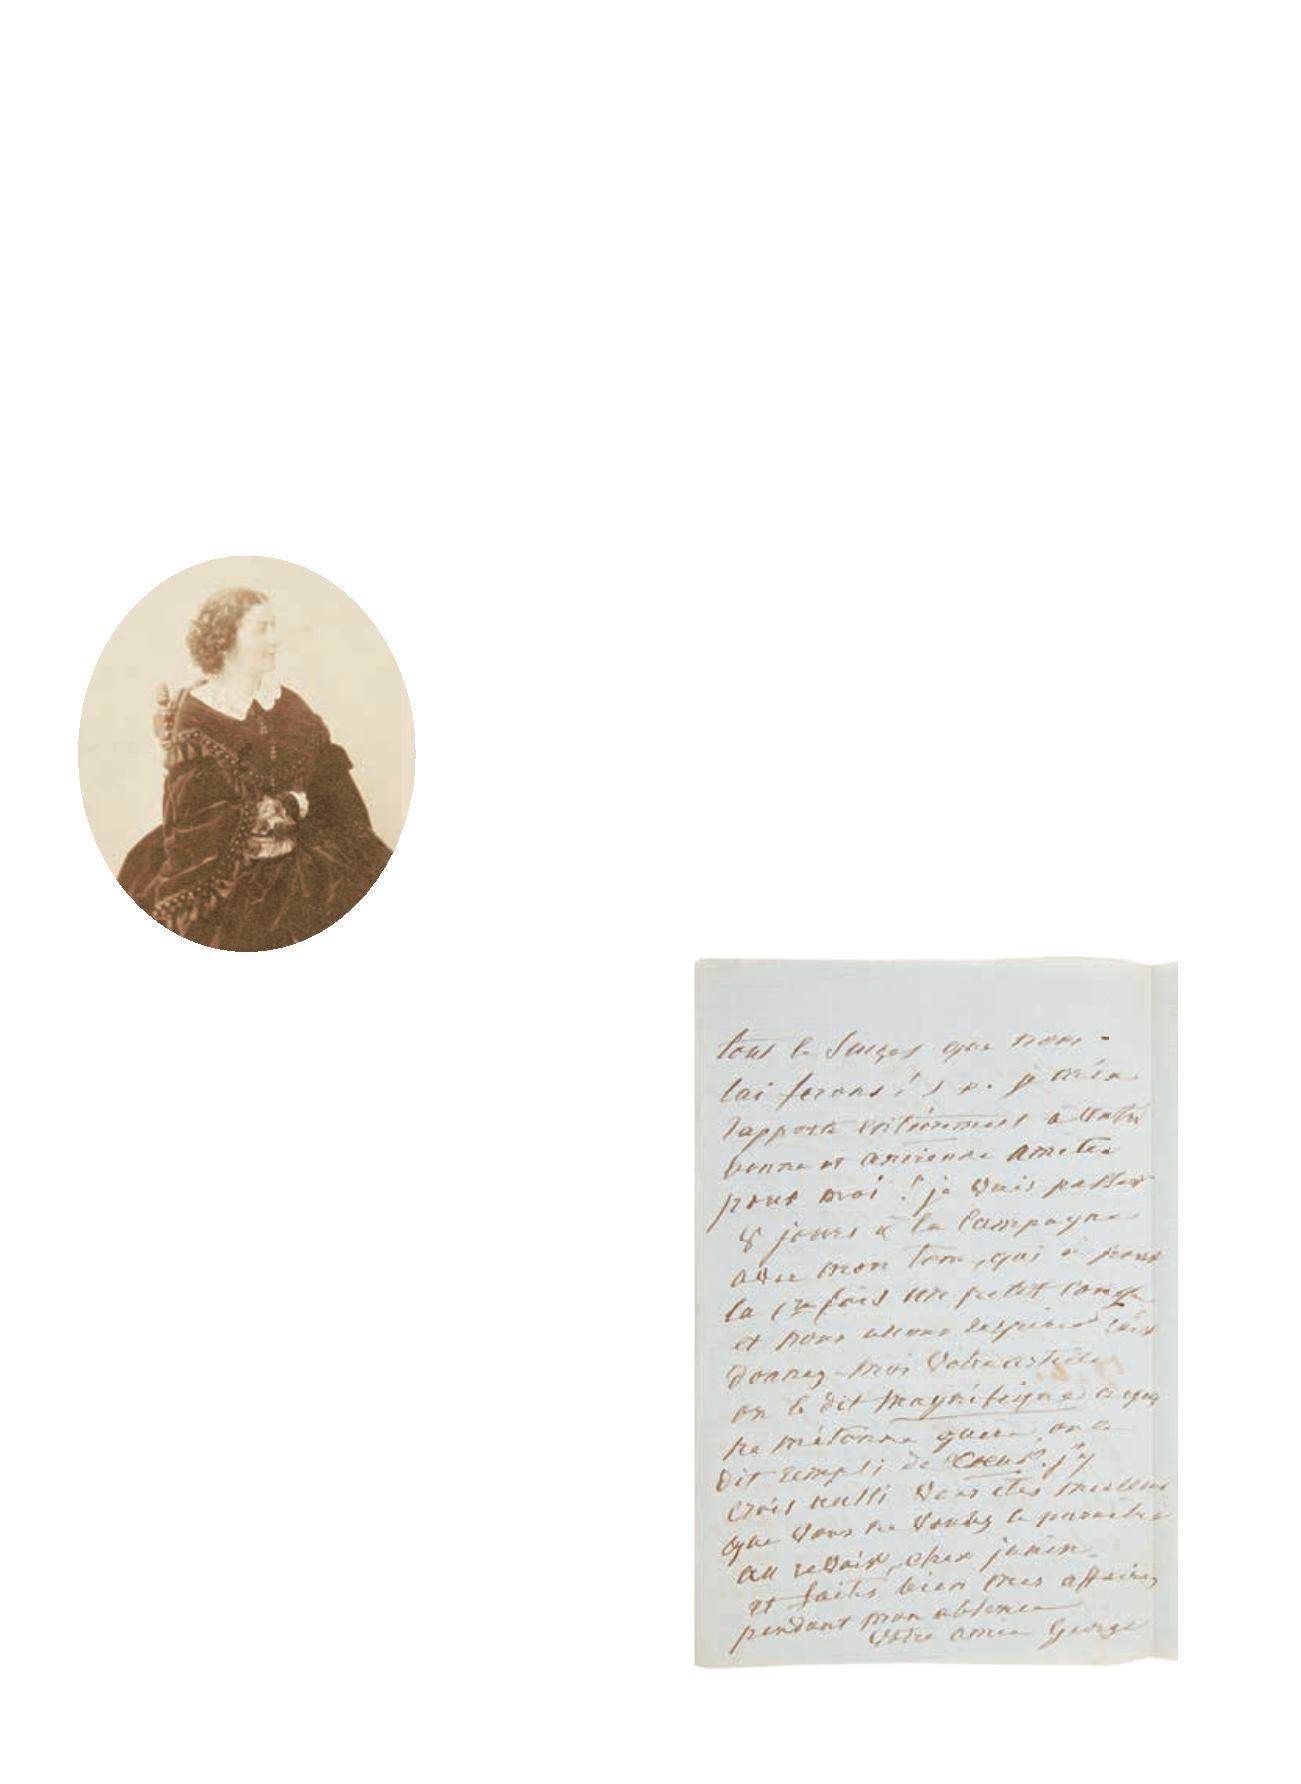 tout le succes que nous
lui ferons! je m'en
rapporte entièrement a Votre
bonne et ancienne amitié
pour moi! je Vais passer
8 jours a la Campagne
avec mon tom, qui a pour
la 1re fois un petit congé
et nous allons respirer
donnez-moi Votre article
on le dit magnifique ce qui
ne m'étonne guère, on le
dit rempli de Cœur. j'y
crois aussi Vous êtes meilleur
que Vous ne Voulez le paraître
au revoir, cher janin
et faites bien mes affaires
pendant mon absence
Votre amie George